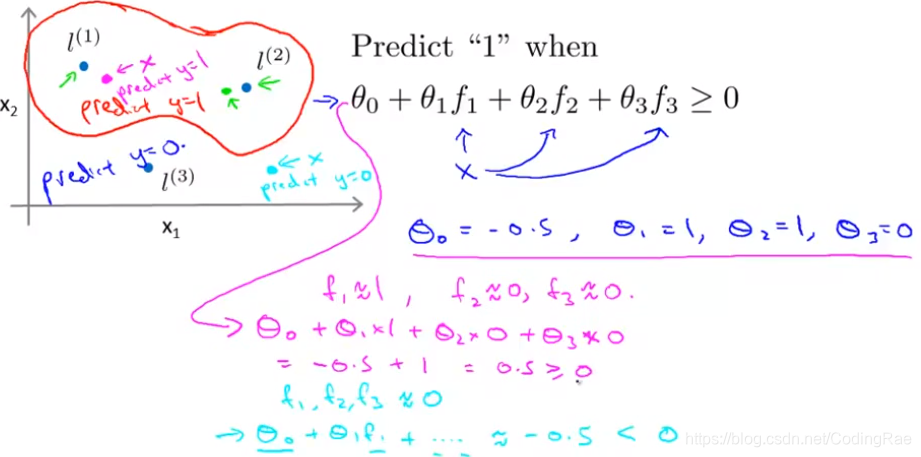 l⁽¹⁾
← x
predict y=1
predict y=1
l⁽²⁾
x₂
predict y=0.
l⁽³⁾
← x
predict y=0
x₁
Predict “1” when
→ θ₀ + θ₁f₁ + θ₂f₂ + θ₃f₃ ≥ 0
x
θ₀ = -0.5, θ₁=1, θ₂=1, θ₃=0
f₁≈1, f₂≈0, f₃≈0.
→ θ₀ + θ₁×1 + θ₂×0 + θ₃×0
= -0.5 + 1 = 0.5 ≥ 0
f₁, f₂, f₃ ≈ 0
→ θ₀ + θ₁f₁ + .... ≈ -0.5 < 0
https://blog.csdn.net/CodingRae